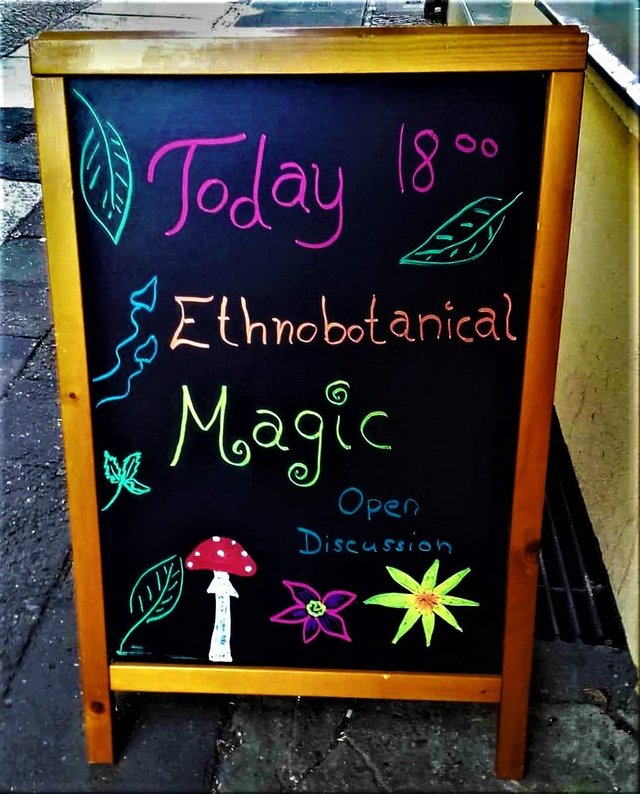 Today 18⁰⁰
Ethnobotanical
Magic
Open
Discussion